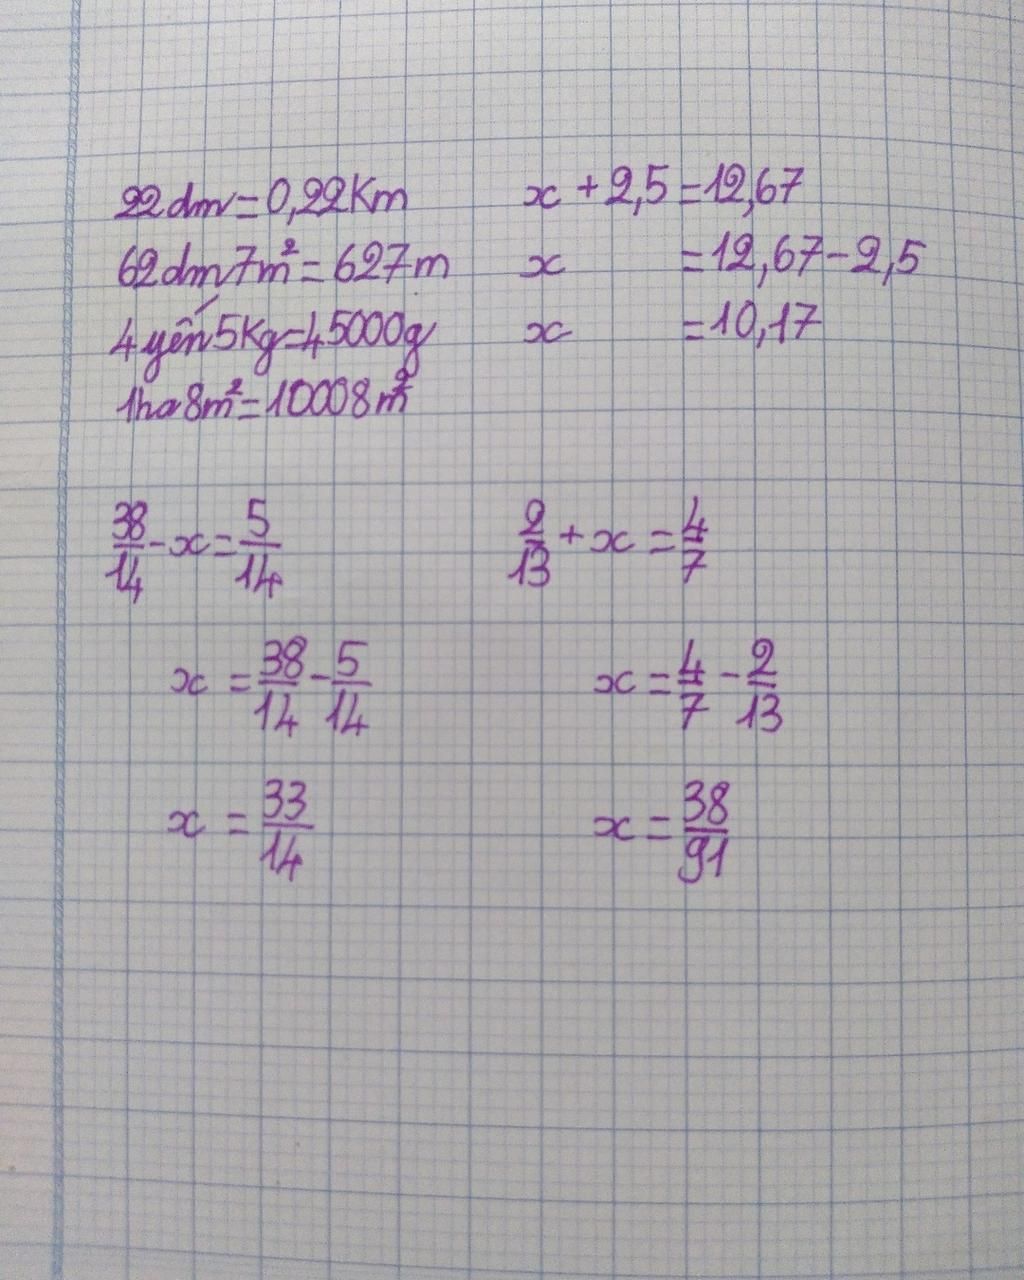 22dm=0,22Km
62dm7m²=627m
4yến5Kg=45000g
1ha8m²=10008m²
x+2,5=12,67
x =12,67-2,5
x =10,17
38/14-x=5/14
x =38/14-5/14
x =33/14
2/13+x=4/7
x=4/7-2/13
x=38/91